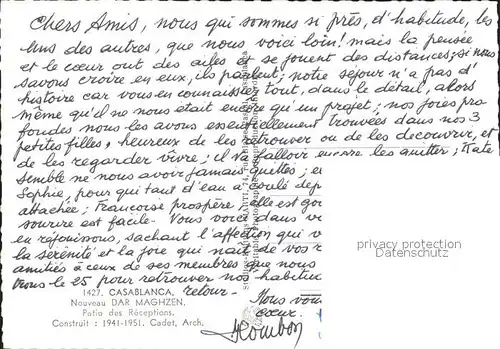 Chers Amis, nous qui sommes si près, d'habitude, les
uns des autres, que nous voici loin! mais la pensée
et le cœur ont des ailes et se jouent des distances; si nous
savons croire en eux, ils parlent; notre séjour n'a pas d'
histoire car vous en connaissiez tout, dans le détail, alors
même qu'il ne nous était encore qu'un projet; nos joies pro-
fondes nous les avons essentiellement trouvées dans nos 3
petites filles, heureux de les retrouver ou de les découvrir, et
de les regarder vivre; il va falloir encore les quitter;
semble ne nous avoir jamais quittés; e
Sophie, pour qui tant d'eau a coulé dep
attachée; Françoise prospère; elle est go
sourire est facile - Vous voici dans v
en réjouissons, sachant l'affection qui v
la sérénité et la joie qui naît de vos r
amitiés à ceux de ses membres que nous
le 25 pour retrouver nos habitu
retour -
Nous vou
cœur.
1427. CASABLANCA.
Nouveau DAR MAGHZEN.
Patio des Réceptions.
Construit : 1941-1951. Cadet, Arch.
privacy protection
Datenschutz